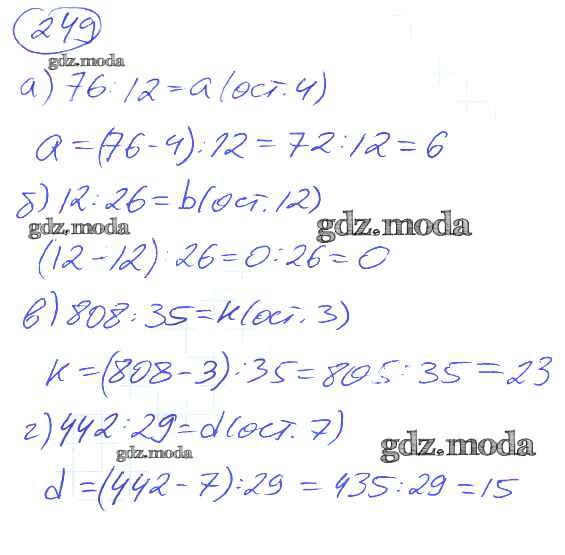 249
gdz.moda
а) 76 : 12 = a (ост. 4)
a = (76 - 4) : 12 = 72 : 12 = 6
б) 12 : 26 = b (ост. 12)
gdz.moda
gdz.moda
(12 - 12) : 26 = 0 : 26 = 0
в) 808 : 35 = к (ост. 3)
к = (808 - 3) : 35 = 805 : 35 = 23
г) 442 : 29 = d (ост. 7)
gdz.moda
gdz.moda
d = (442 - 7) : 29 = 435 : 29 = 15